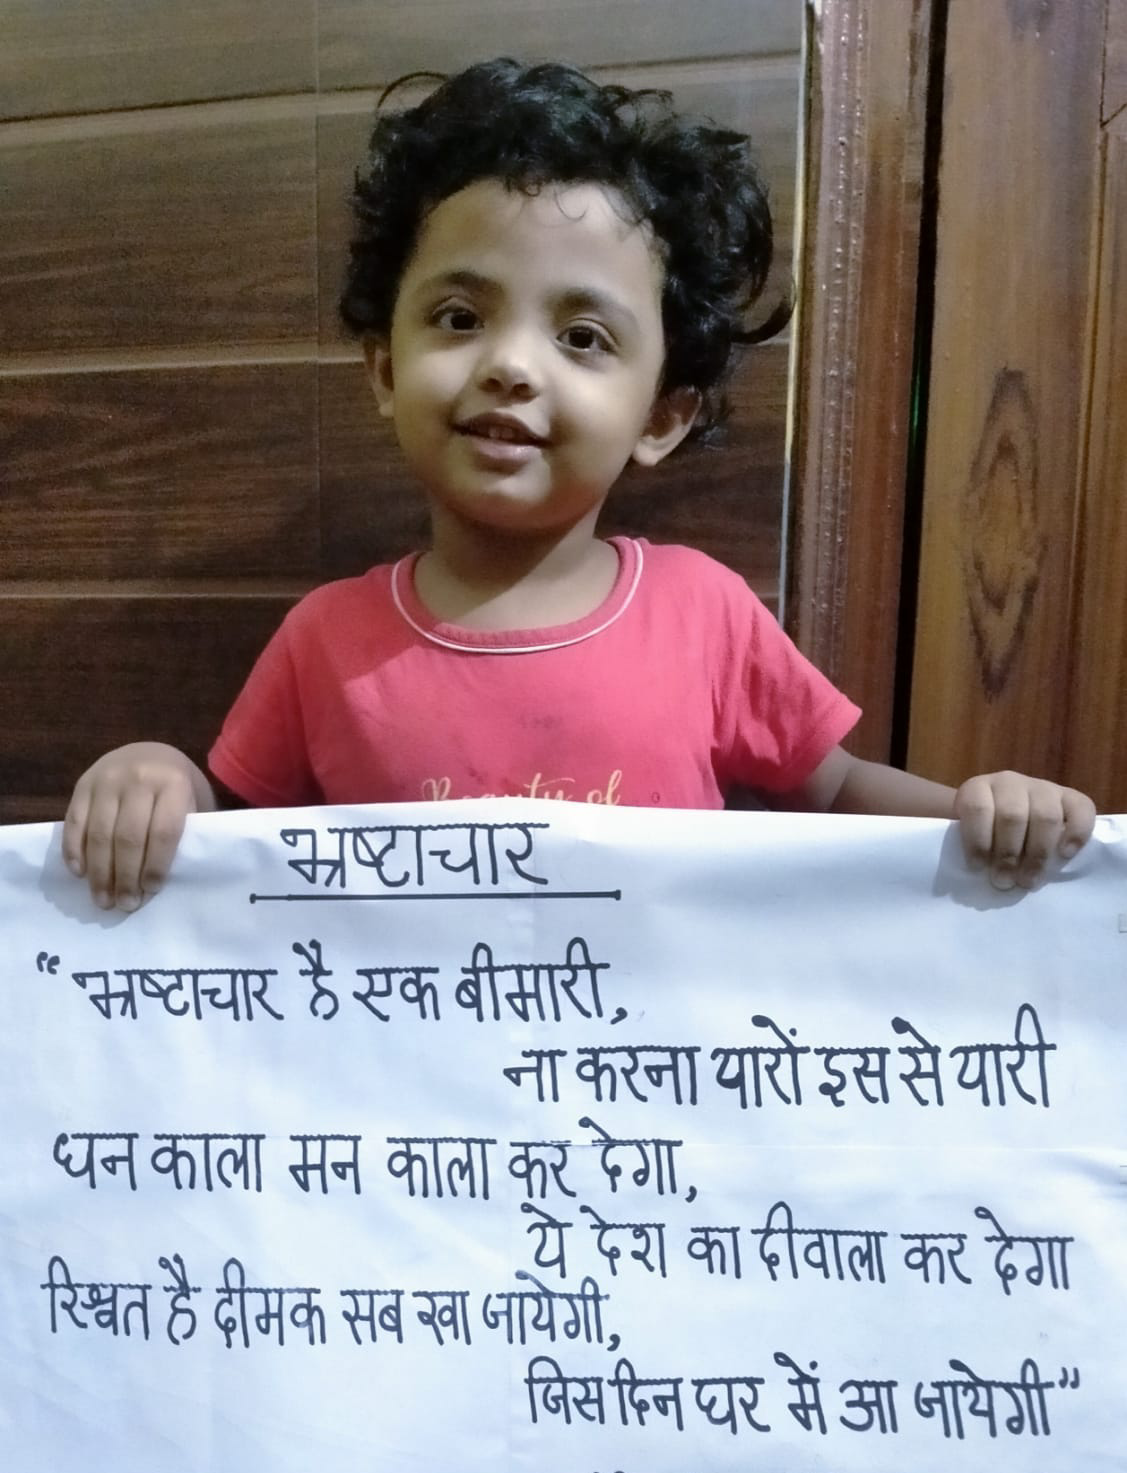 Beauty of
भ्रष्टाचार
“भ्रष्टाचार है एक बीमारी,
ना करना यारों इस से यारी
धन काला मन काला कर देगा,
ये देश का दीवाला कर देगा
रिश्वत है दीमक सब खा जायेगी,
जिस दिन घर में आ जायेगी”